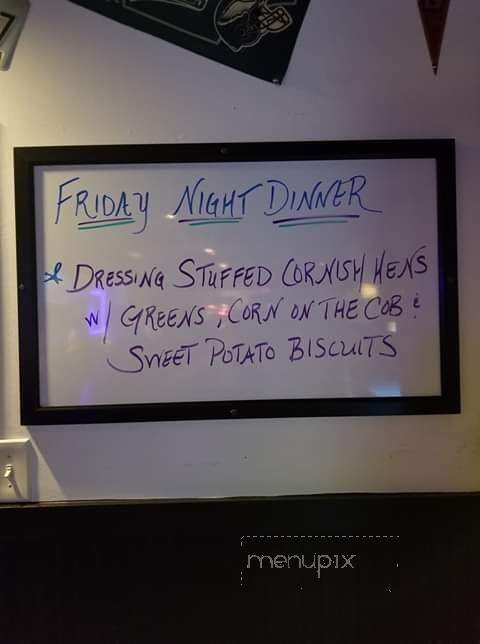 FRIDAY NIGHT DINNER
* DRESSING STUFFED CORNISH HENS
W/ GREENS, CORN ON THE COB &
SWEET POTATO BISCUITS
menupix